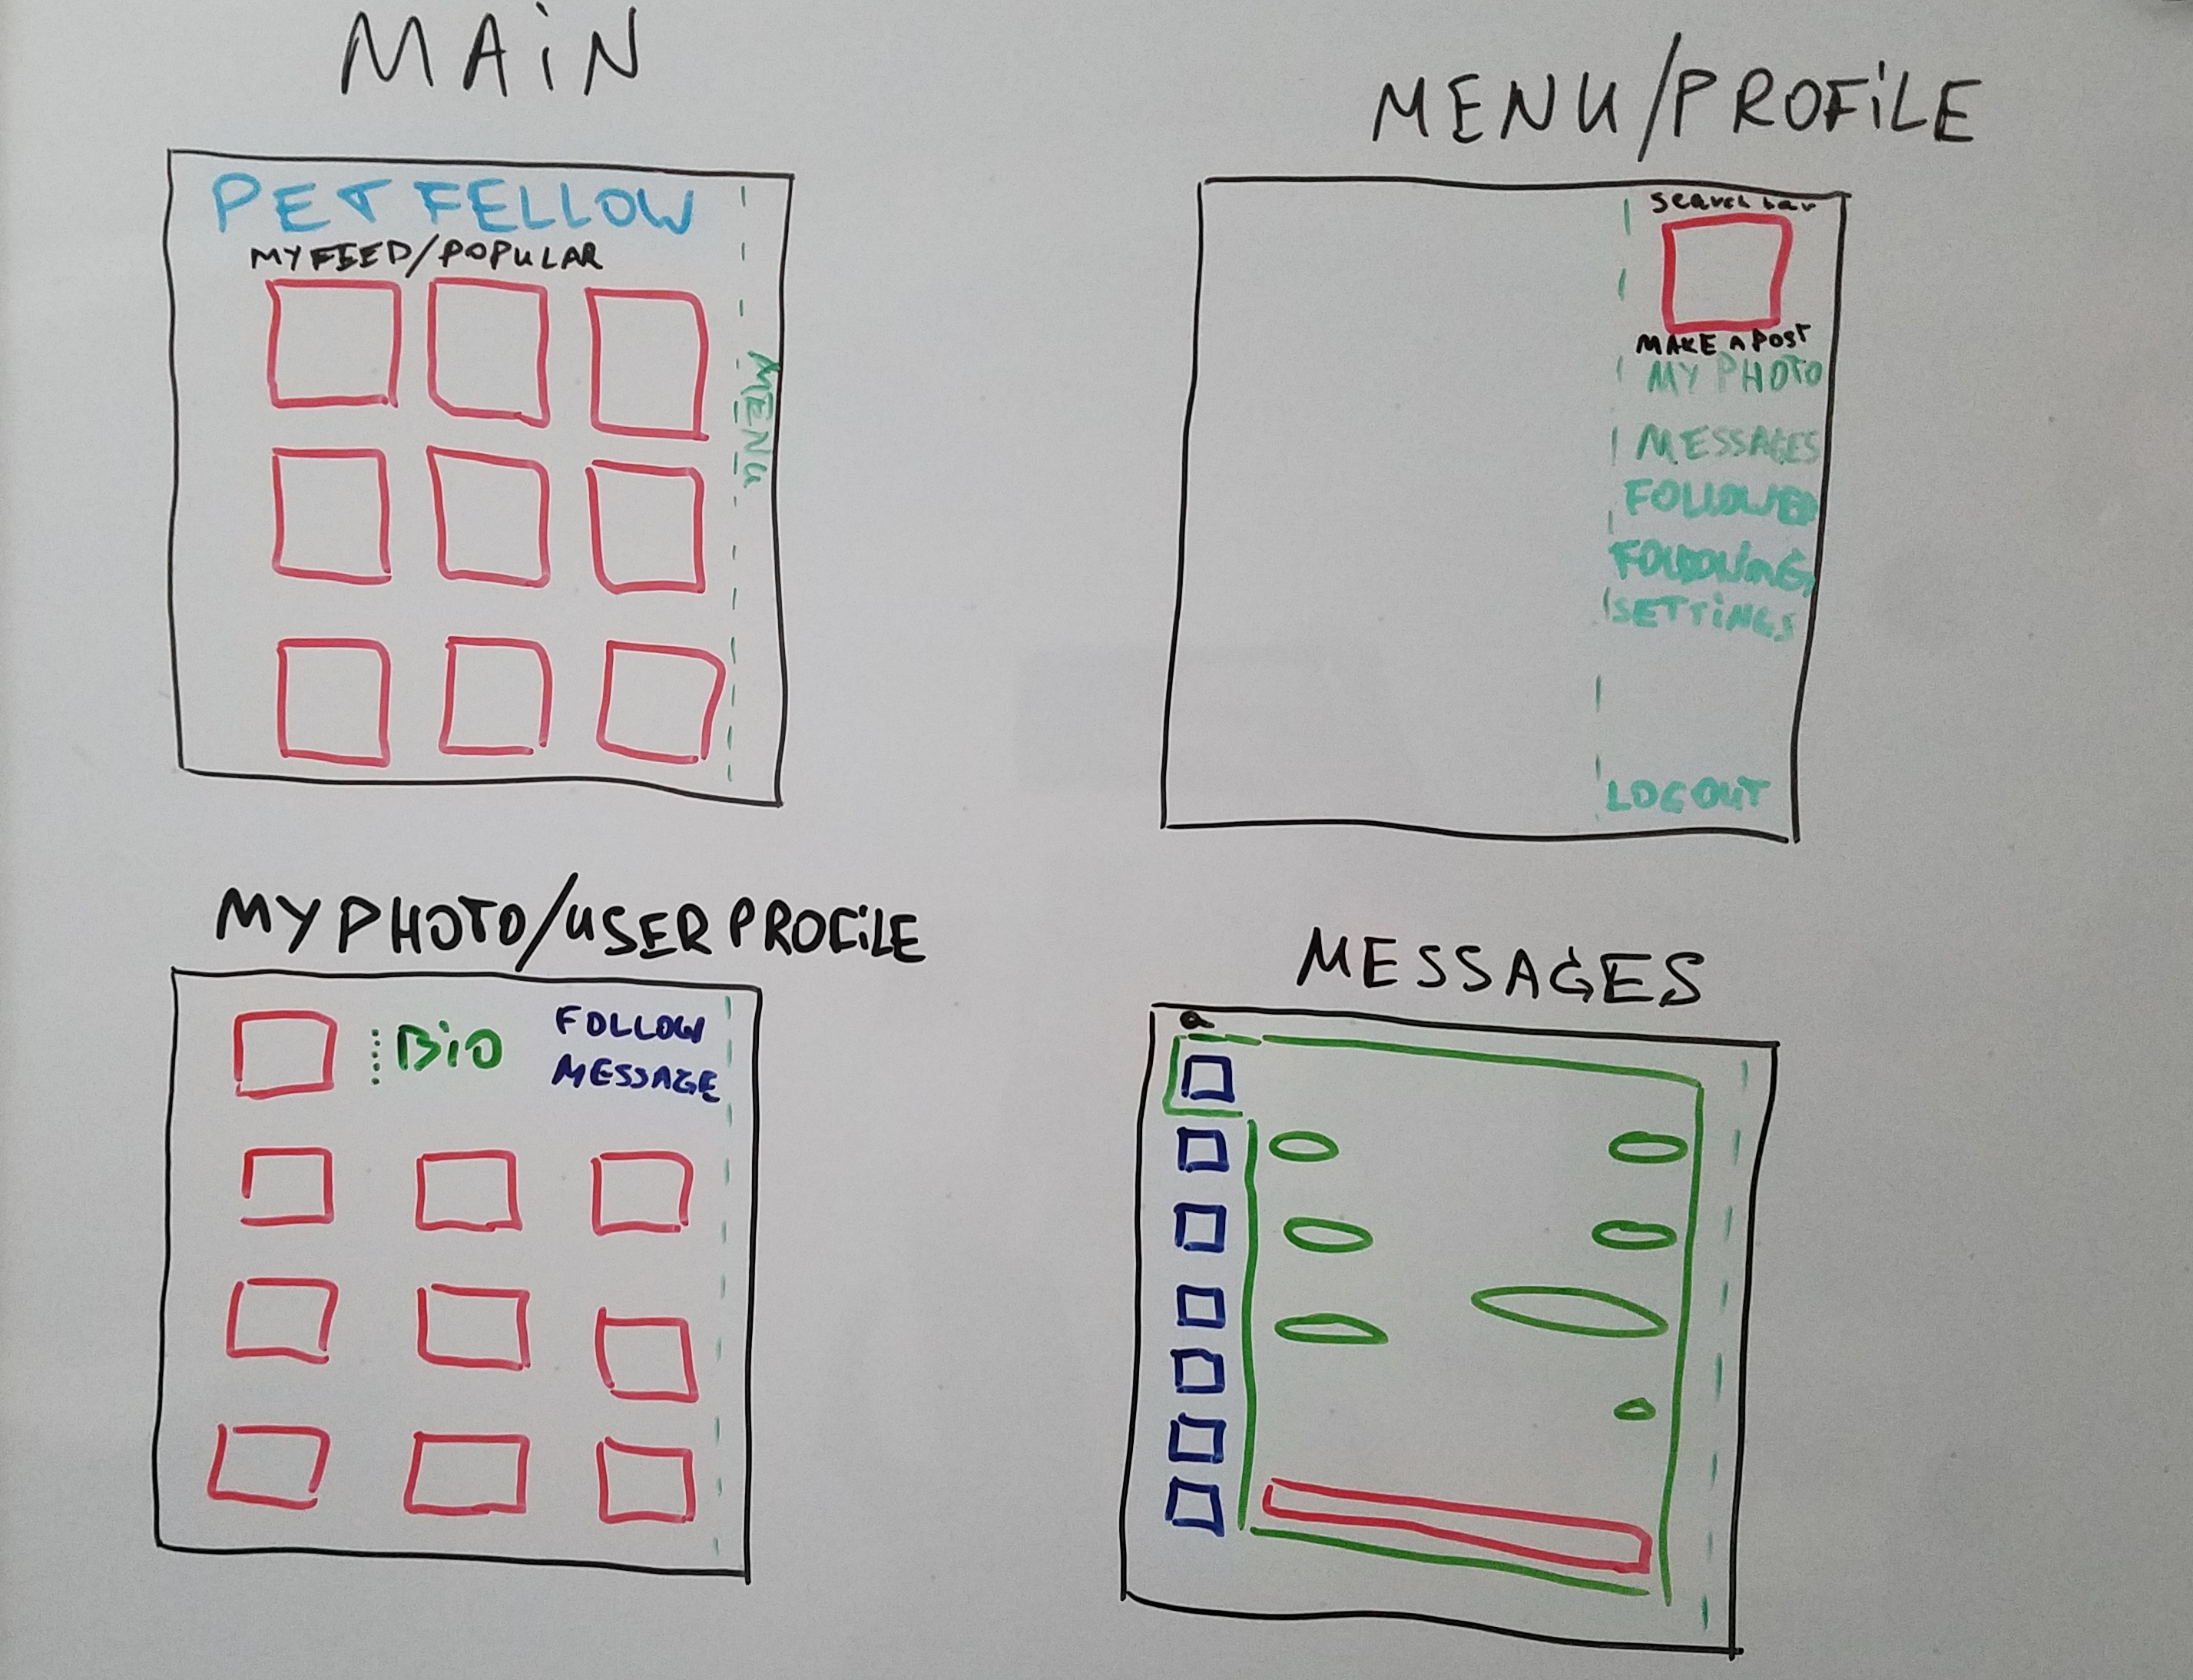 MAiN
PET FELLOW
MY FEED/POPULAR
MENU
MENU/PROFiLE
Search bar
MAKE A POST
MY PHOTO
MESSAGES
FOLLOWED
FOLLOWiNG
SETTiNGS
LOGOUT
MY PHOTO/USER PROFiLE
BiO
FOLLOW
MESSAGE
MESSAGES
a